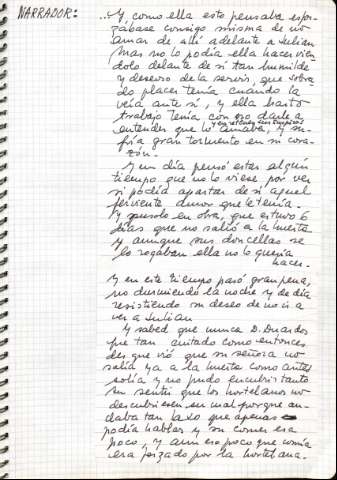 NARRADOR:
...Y como ella esto pensaba esfor-
zábase consigo misma de no
amar de allí adelante a Julian
Mas no lo podía ella hacer vien
dolo delante de si tan humilde
y deseoso de la servir, que sobra-
do placer tenía cuando la
veía ante sí, y ella harto
trabajo tenía con no darle a
y en el cuerpo
entender que lo amaba, y su
fría gran tormento en su cora-
zón.
Y un día pensó estar algún
tiempo que no lo viese por ver
si podía apartar de sí aquel
ferviente amor que le tenía.
Y púsolo en obra, que estuvo 6
días que no salió a la huerta
y aunque sus doncellas se
lo rogaban ella no lo quería
hacer.
Y en este tiempo pasó gran pena,
no durmiendo la noche y de día
resistiendo su deseo de no ir a
ver a Julian
Y sabed que nunca D. Duardos
fue tan cuitado como entonces
des que vió que su señora no
salía ya a la huerta como antes
solía y no pudo encubrir tanto
su sentir que los hortelanos no
descubriesen su mal porque an-
daba tan laso que apenas
podía hablar y su comer era
poco, y aun eso poco que comía
era forzado por la hortelana.